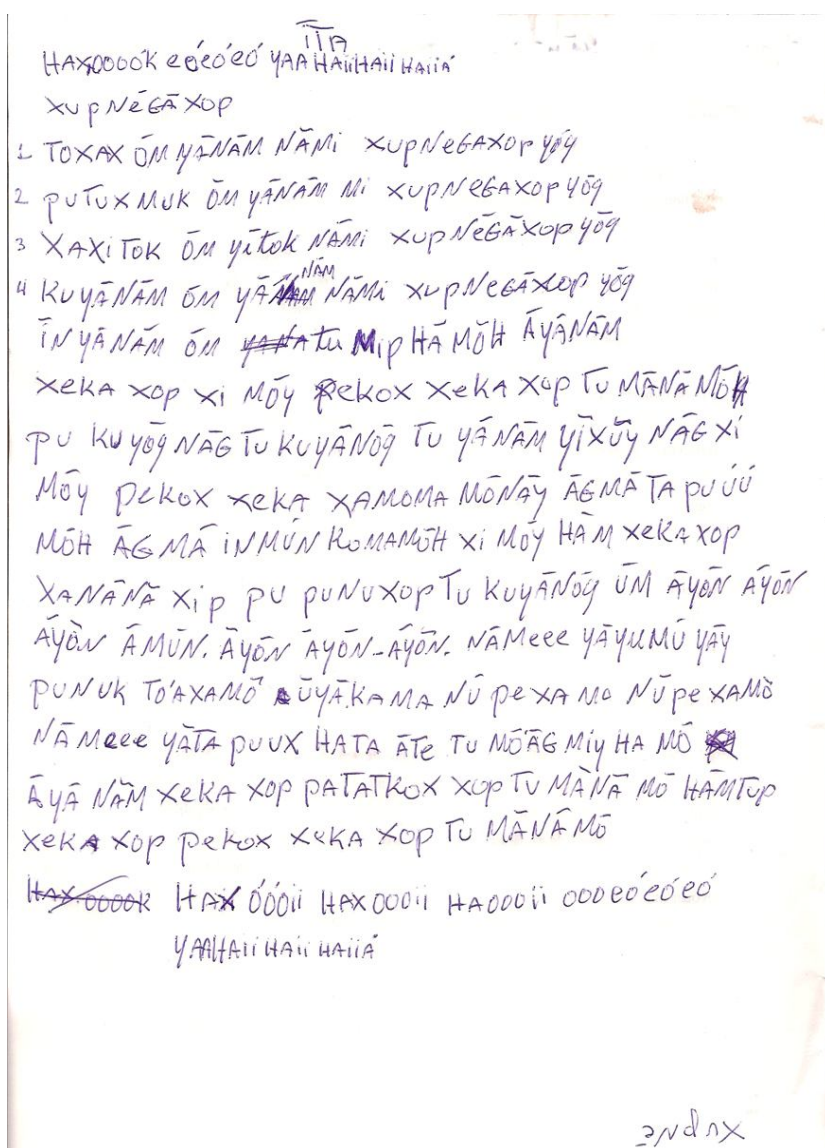 ĨĨA
HAXOOOOK eóeóeó YAAHAiiHAii HAiiÁ
XUPNÉGÃXOP
1 TOXAX ÕM YÃNÃM NÃMi XUPNEGAXOP YÕG
2 PUTUX MUK ÕM YÃNÃM Mi XUPNEGAXOP YÕG
3 XAXiTOK ÕM YĨTOK NÃMi XUPNÉGÃXOP YÕG
4 KUYÃNÃM ÕM YÃNÃM NÃMi XUPNEGÃXOP YÕG
ĨNYÃNÃM ÕM TU MIP HÃ MÕH ÃYÃNÃM
XEKA XOP Xi MÕY PEKOX XEKA XOP TU MÃNÃ MÕH
PU KUYÕG NÃG TU KUYÃNÕG TU YÃNÃM YĨXŨY NÃG Xi
MÕY PEKOX XEKA XAMOMA MÕNÃY ÃGMÃ TA PU ÚÚ
MÕH ÃGMÃ iNMŨN KOMAMÕH Xi MÕY HÃM XEKA XOP
XANÃNÃ XiP PU PUNUXOP TU KUYÃNÕG ŨM ÃYÕN ÃYÕN
ÃYÕN ÃMŨN. ÃYÕN ÃYÕN-ÃYÕN. NÃMeee YÃYUMŨ YÃY
PUNUK TO'AXAMÕ ŨYÃKAMA NŨ PE XA MO NŨ PE XAMÕ
NÃMeee YÃTA PUUX HATA ÃTE TU MÕ'ÃG MIY HA MÕ
ÃYÃ NÃM XEKA XOP PATATKOX XOP TU MÃNÃ MÕ HÃMTUP
XEKA XOP PEKOX XEKA XOP TU MÃNÃ MÕ
HAX ÓÓÓii HAXOOOii HAOOOii OOOeóeóeó
YAAHAiiHAii HAiiÁ
XUPNE